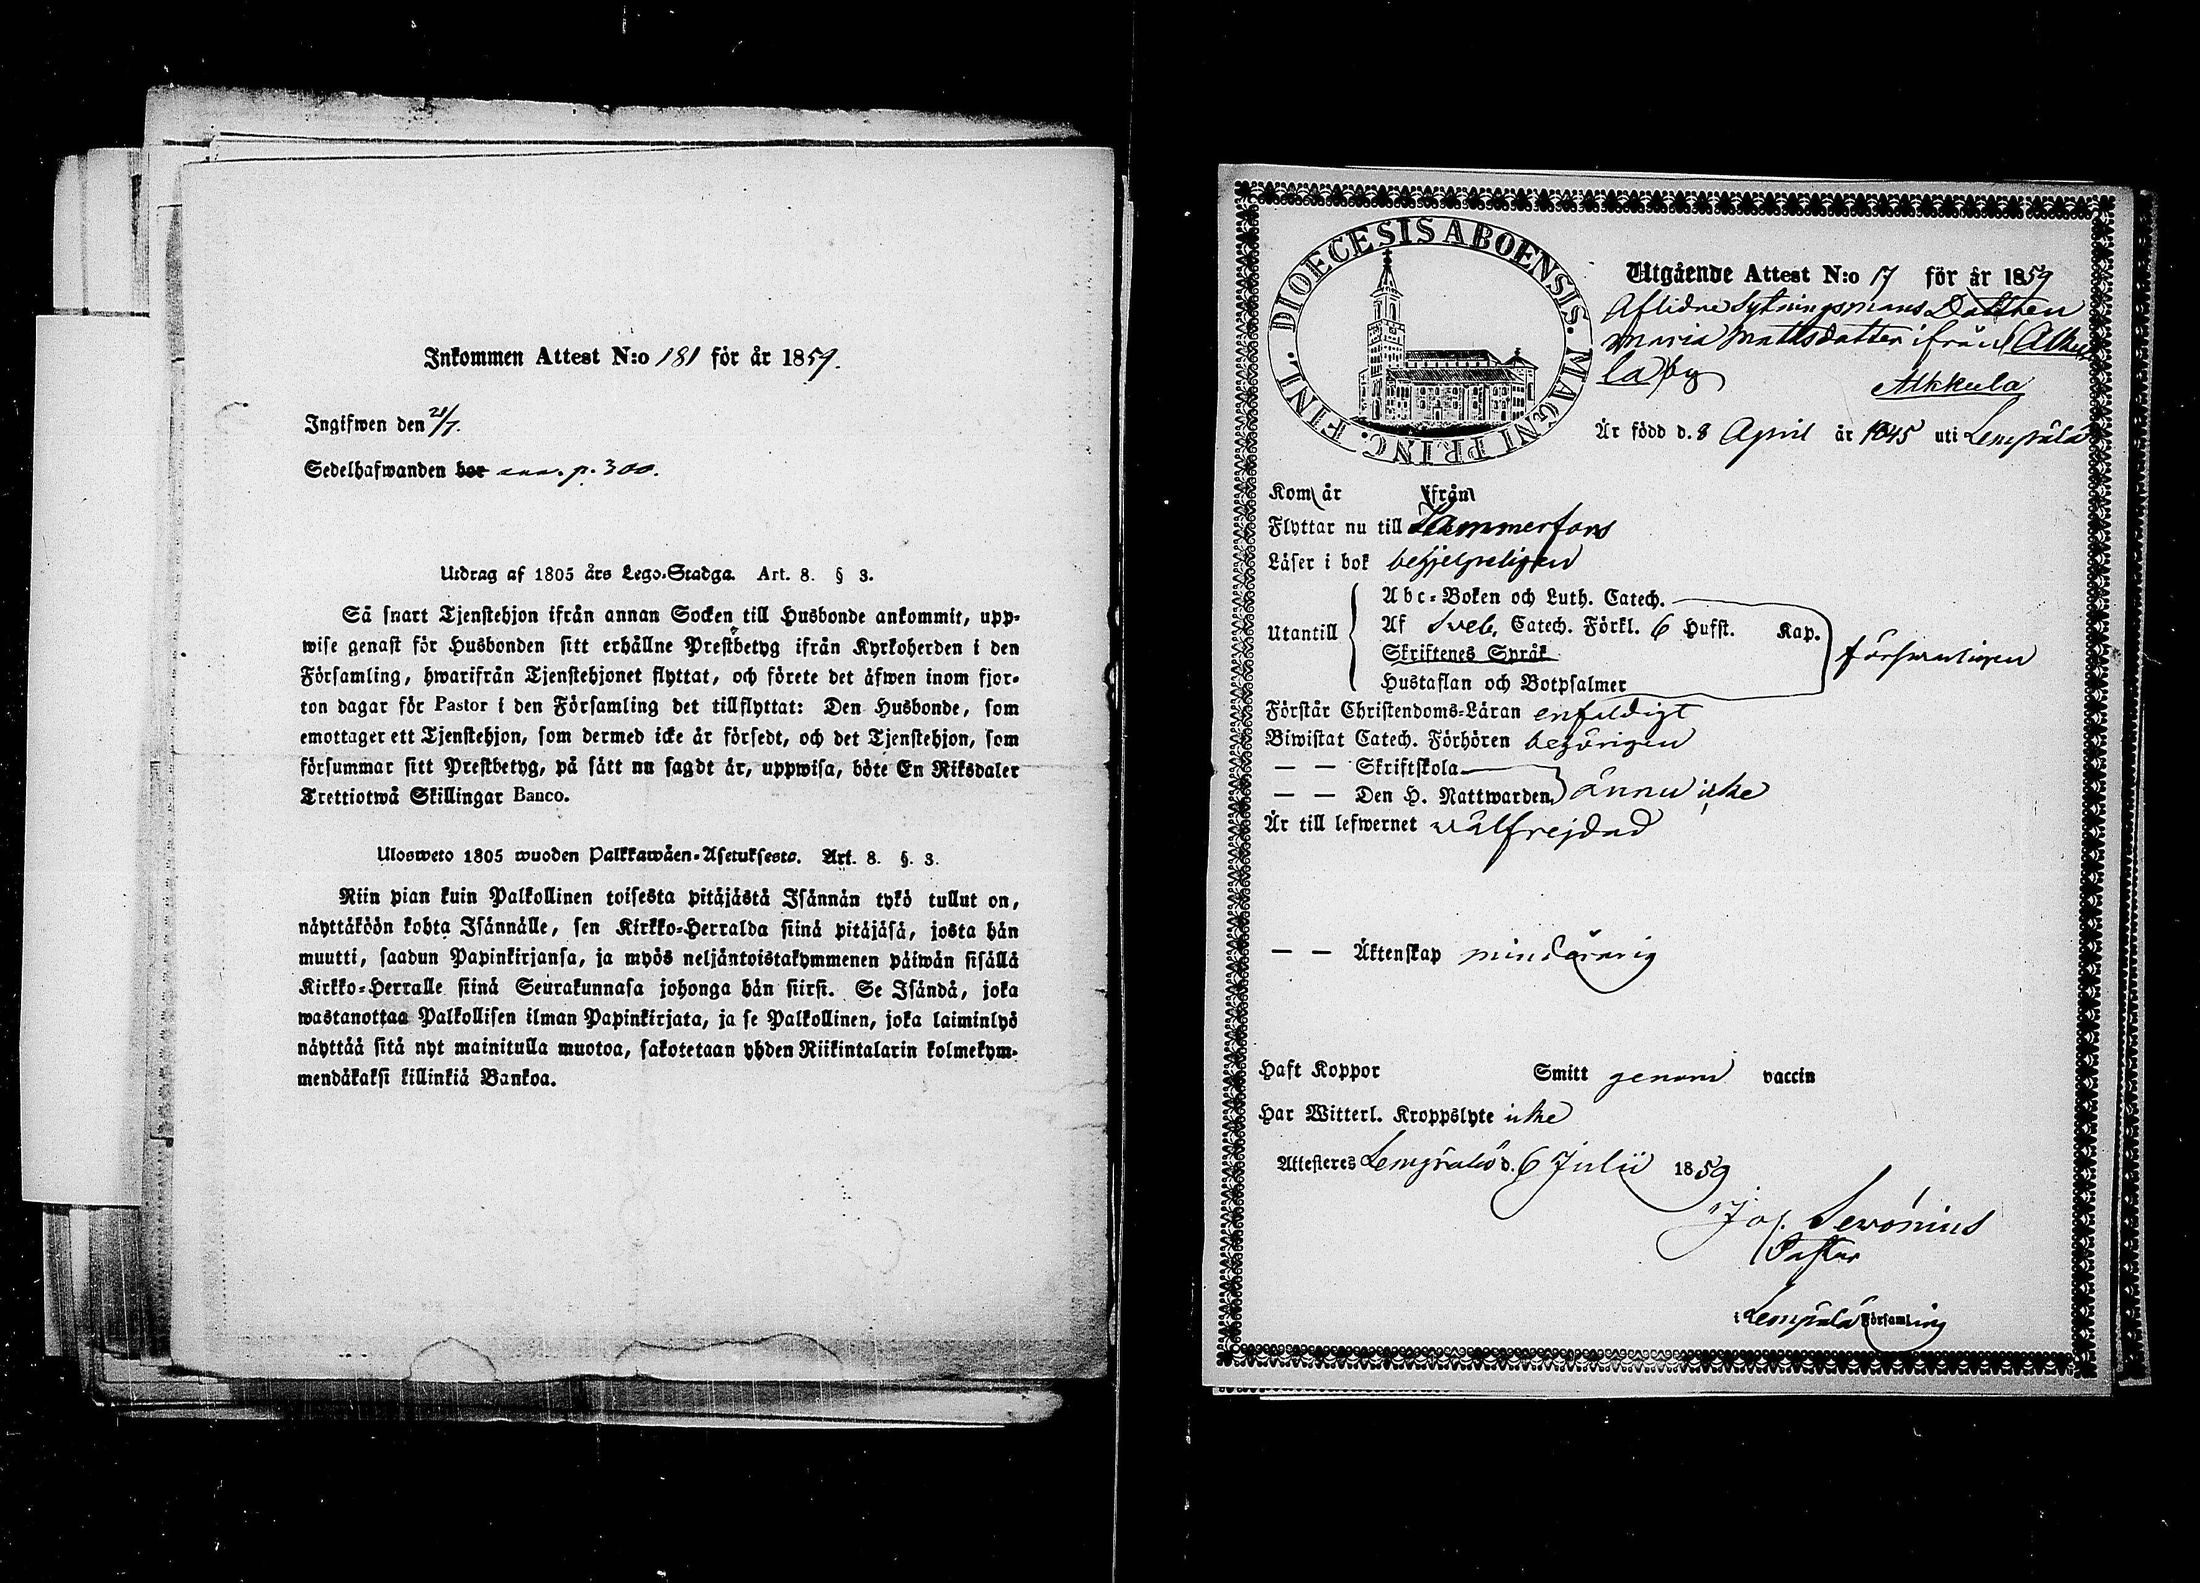 Inkommen Attest N:o 181 för år 1859.
Ingifwen den 21/7.
Sedelhafwanden bor ann. p. 300.
Utdrag af 1805 års Lego-Stadga. Art. 8. § 3.
Så snart Tjenstehjon ifrån annan Socken till Husbonde ankommit, upp-
wise genast för Husbonden sitt erhållne Prestbetyg ifrån Kyrkoherden i den
Församling, hwarifrån Tjenstehjonet flyttat, och förete det äfwen inom fjor-
ton dagar för Pastor i den Församling det tillflyttat: Den Husbonde, som
emottager ett Tjenstehjon, som dermed icke är försedt, och det Tjenstehjon, som
försummar sitt Prestbetyg, på sätt nu sagdt är, uppwisa, böte En Riksdaler
Trettiotwå Skillingar Banco.
Ulosweto 1805 wuoden Palkkawäen-Asetuksesta. Art. 8. §. 3.
Niin pian kuin Palkollinen toisesta pitäjästä Isännän tykö tullut on,
näyttäköön kohta Isännälle, sen Kirkko-Herralda siinä pitäjäsä, josta hän
muutti, saadun Papinkirjansa, ja myös neljäntoistakymmenen päiwän sisällä
Kirkko-Herralle siinä Seurakunnasa johonga hän siirsi. Se Isändä, joka
wastanottaa Palkollisen ilman Papinkirjata, ja se Palkollinen, joka laiminlyö
näyttää sitä nyt mainitulla muotoa, sakotetaan yhden Riikintalarin kolmekym-
mendäkaksi killinkiä Bankoa.
DIOECESIS ABOENSIS. MAGNI PRINC. FINL.
Utgående Attest N:o 17 för år 1859
Aflidne Sytningsmans Dottren
Maria Mattsdotter ifrån (Alku
la) by Alkkula
Är född d. 8 April år 1845 uti Lempälä
Kom år ifrån
Flyttar nu till Tammerfors
Läser i bok behjelpeligen
Utantill
Abc-Boken och Luth. Catech.
Af Sveb. Catech. Förkl. 6 Hufst. Kap.
Skriftenes Språk
Hustaflan och Botpsalmer
försvarligen
Förstår Christendoms-Läran enfaldigt
Biwistat Catech. Förhören behörigen
— — Skriftskola
— — Den H. Nattwarden ännu icke
Är till lefwernet wälfrejdad
— — Äktenskap minderårig
Haft Koppor Smitt genom vaccin
Har Witterl. Kroppslyte icke
Attesteres Lempälä d. 6 Julii 1859
Jos. Serónius
Pastor
i Lempälä Församling